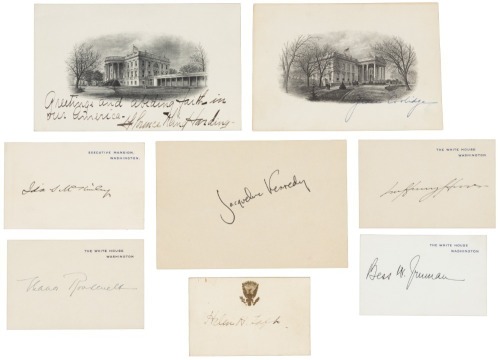 Greetings and abiding faith in
our America.
Florence Kling Harding.
Coolidge
EXECUTIVE MANSION,
WASHINGTON.
Ida S. McKinley
Jacqueline Kennedy
THE WHITE HOUSE
WASHINGTON
Lou Henry Hoover
THE WHITE HOUSE
WASHINGTON
Roosevelt
Helen H. Taft.
THE WHITE HOUSE
WASHINGTON
Bess W. Truman